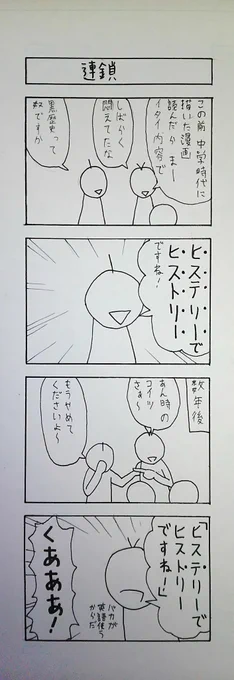 連鎖
この前 中学時代に
描いた漫画
読んだら まー
イタイ内容で
しばらく
悶えてたな
黒歴史って
奴ですか
ヒステリーで
ヒストリー
ですね!
数年後
あん時の
コイツ
さぁ~
もうやめて
くださいよ~
「ヒステリーで
ヒストリー
ですね!」
バカが
英語使う
からだ
くあああ!